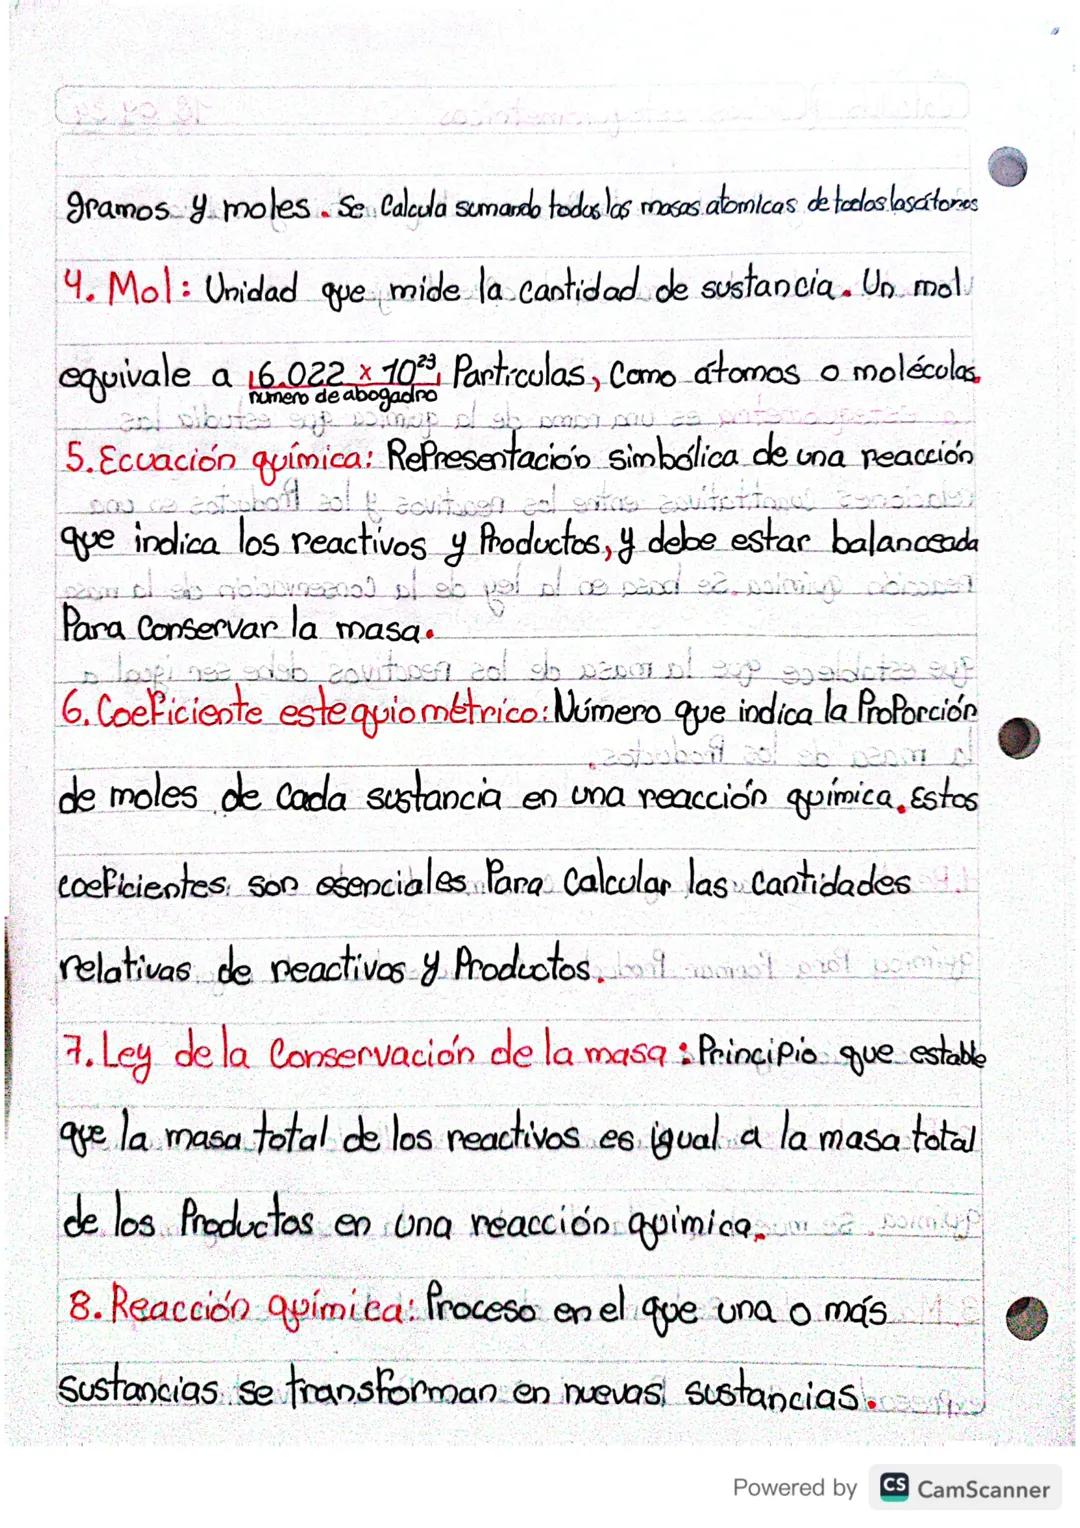 gramos y moles. Se Calcula sumando todas las masas atomicas de todos los átomos
4. Mol: Unidad que mide la cantidad de sustancia. Un mol
equivale a 6.022 x 10²³ Particulas, Como átomos o moléculas.
numero de abogadro
5. Ecuación química: Representación simbólica de una reacción
que indica los reactivos y Productos, y debe estar balanceada
Para Conservar la masa.
6. Coeficiente estequiométrico: Número que indica la Proporción
de moles de Cada sustancia en una reacción química. Estos
coeficientes son esenciales Para Calcular las Cantidades
relativas de reactivos y Productos.
7. Ley de la Conservación de la masa: Principio que estable
que la masa total de los reactivos es igual a la masa total
de los Productos en una reacción quimica.
8. Reacción química: Proceso en el que una o más
sustancias se transforman en nuevas sustancias.
Powered by CS CamScanner